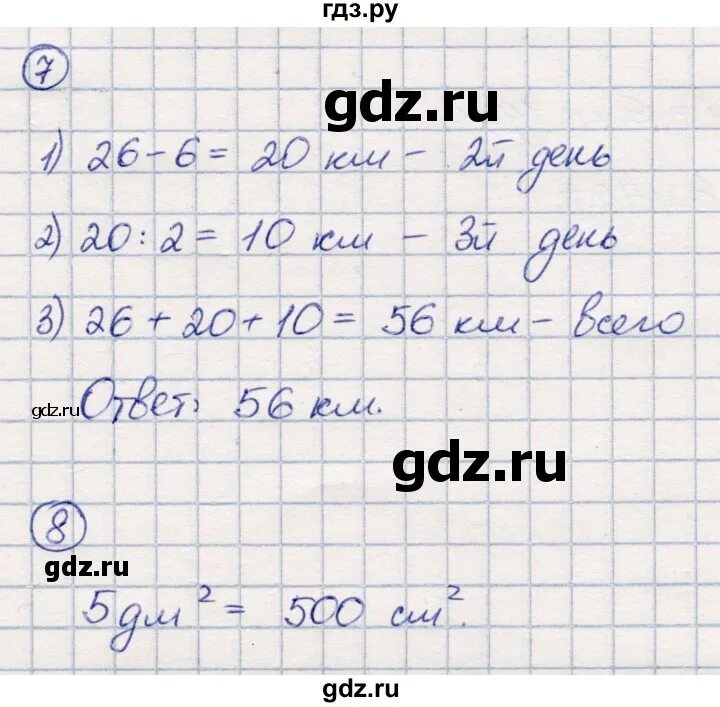 гдз.ру
7
gdz.ru
1) 26 - 6 = 20 км - 2й день
2) 20 : 2 = 10 км - 3й день
3) 26 + 20 + 10 = 56 км - всего
gdz.ru Ответ: 56 км.
gdz.ru
8
gdz.ru
5 дм² = 500 см².
gdz.ru